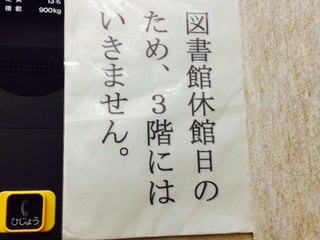 定員 13名
積載 900kg
図書館休館日の
ため、3階には
いきません。
ひじょう